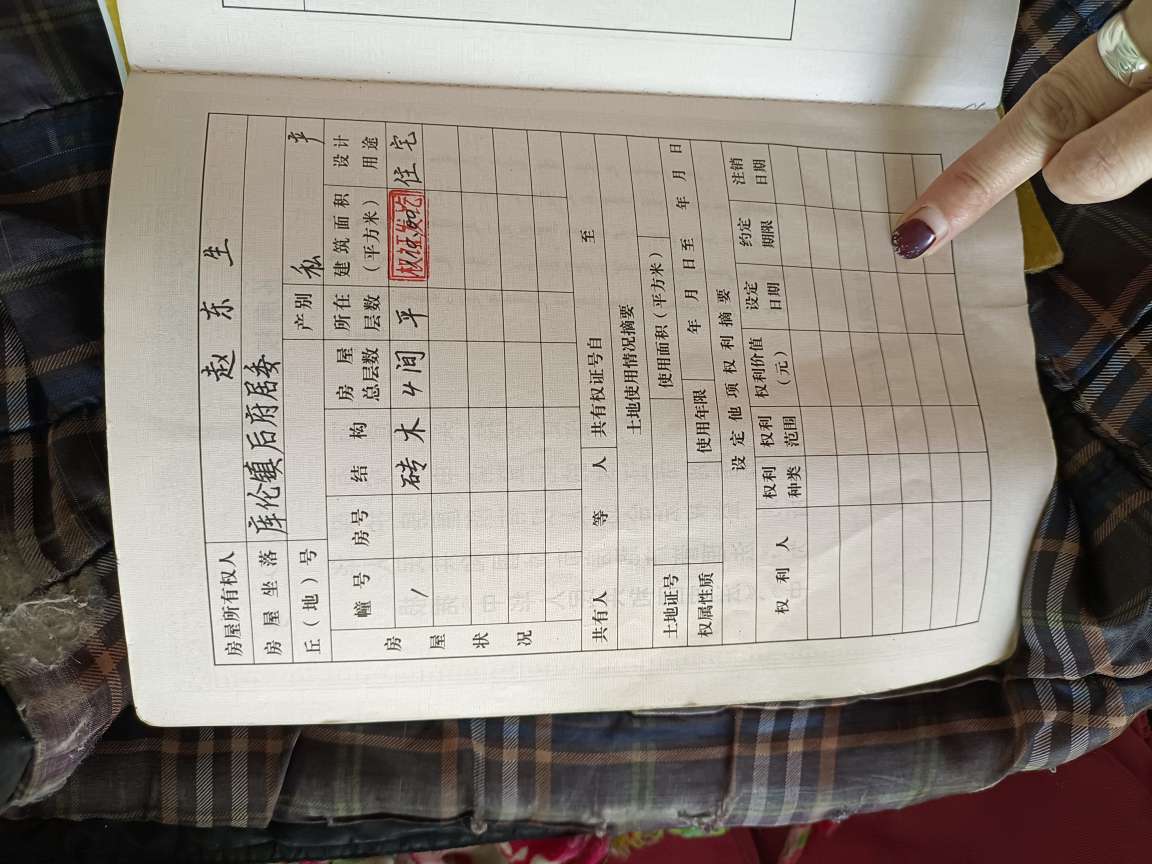 房屋所有权人 赵东生
房屋坐落 库伦镇后府居委
丘(地)号 产别 私产
房屋状况
幢号 房号 结构 房屋总层数 所在层数 建筑面积(平方米) 设计用途
1 砖木 4间 平 住宅
共有人 等 人 共有权证号自 至
土地使用情况摘要
土地证号 使用面积(平方米)
权属性质 使用年限 年 月 日至 年 月 日
设定他项权利摘要
权利人 权利种类 权利范围 权利价值(元) 设定日期 约定期限 注销日期